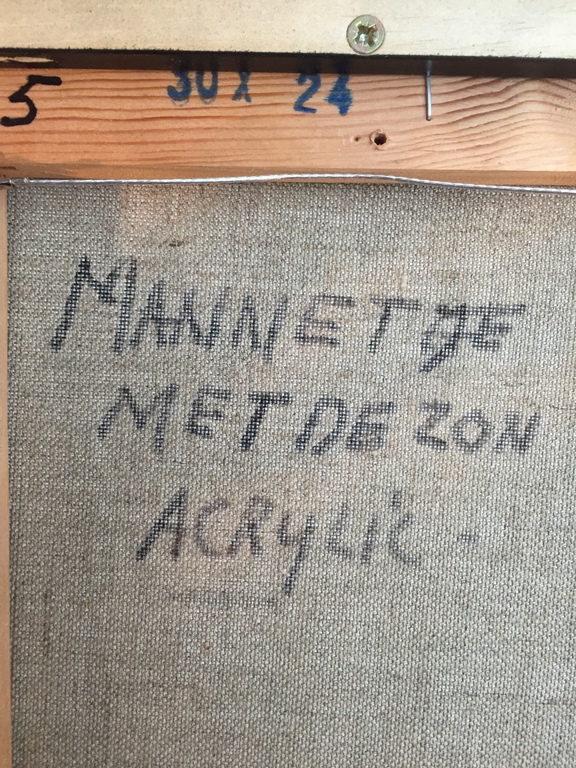 5 30 x 24
MANNETJE
MET DE ZON
ACRYLIC -